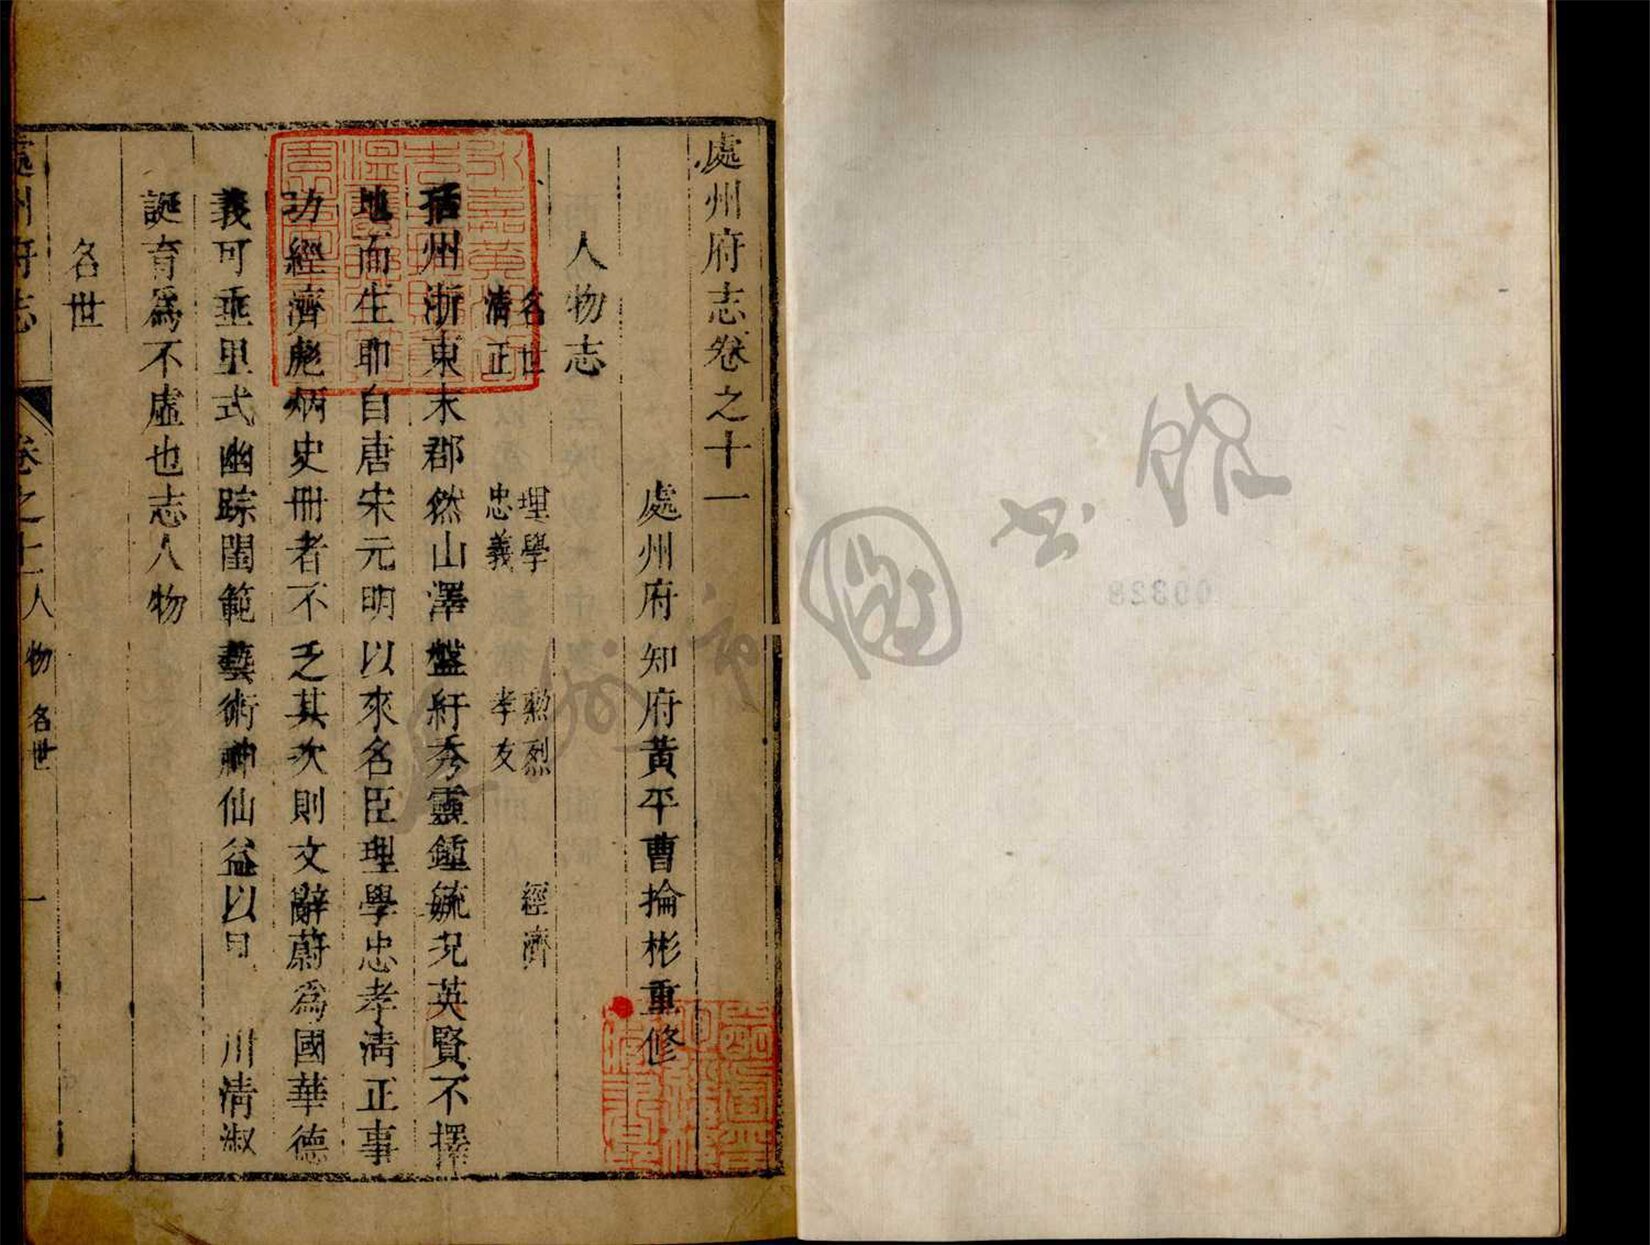 處州府志卷之十一
處州府知府黃平曹掄彬重修
人物志
名世 理學 勲烈 經濟
清正 忠義 孝友
括州浙東末郡然山澤盤紆秀靈鍾毓況英賢不擇
地而生耶自唐宋元明以來名臣理學忠孝清正事
功經濟彪炳史冊者不乏其次則文辭蔚為國華德
義可垂里式幽踪閨範藝術神仙益以見 川清淑
誕育為不虛也志人物
名世
處州府志 卷之十一 人物 名世 一
圖書館
00328